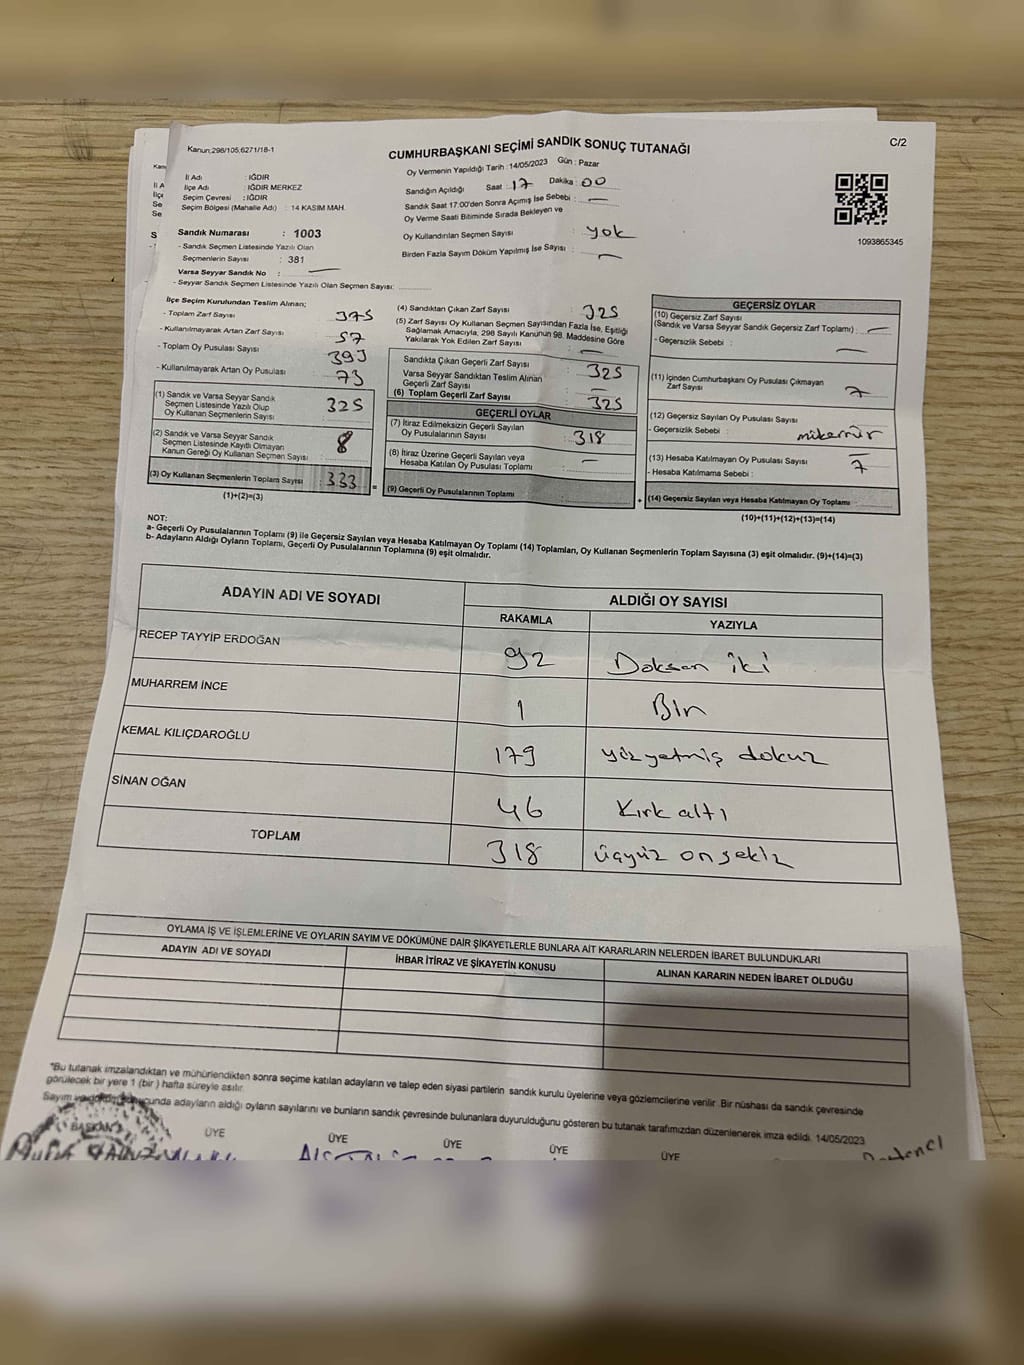 Kanun;298/105;6271/18-1
C/2
CUMHURBAŞKANI SEÇİMİ SANDIK SONUÇ TUTANAĞI
Oy Vermenin Yapıldığı Tarih : 14/05/2023 Gün : Pazar
İl Adı : IĞDIR
İlçe Adı : IĞDIR MERKEZ
Seçim Çevresi : IĞDIR
Seçim Bölgesi (Mahalle Adı) : 14 KASIM MAH.
Sandığın Açıldığı Saat : 17 Dakika : 00
Sandık Saat 17:00'den Sonra Açılmış İse Sebebi : —
Oy Verme Saati Bitiminde Sırada Bekleyen ve
Oy Kullandırılan Seçmen Sayısı : yok
Birden Fazla Sayım Döküm Yapılmış İse Sayısı : —
1093865345
Sandık Numarası : 1003
- Sandık Seçmen Listesinde Yazılı Olan
Seçmenlerin Sayısı : 381
Varsa Seyyar Sandık No : —
- Seyyar Sandık Seçmen Listesinde Yazılı Olan Seçmen Sayısı:
İlçe Seçim Kurulundan Teslim Alınan;
- Toplam Zarf Sayısı 375
- Kullanılmayarak Artan Zarf Sayısı 57
- Toplam Oy Pusulası Sayısı 393
- Kullanılmayarak Artan Oy Pusulası 73
(1) Sandık ve Varsa Seyyar Sandık
Seçmen Listesinde Yazılı Olup
Oy Kullanan Seçmenlerin Sayısı : 325
(2) Sandık ve Varsa Seyyar Sandık
Seçmen Listesinde Kayıtlı Olmayan
Kanun Gereği Oy Kullanan Seçmen Sayısı : 8
(3) Oy Kullanan Seçmenlerin Toplam Sayısı : 333
(1)+(2)=(3)
(4) Sandıktan Çıkan Zarf Sayısı : 325
(5) Zarf Sayısı Oy Kullanan Seçmen Sayısından Fazla İse, Eşitliği
Sağlamak Amacıyla, 298 Sayılı Kanunun 98. Maddesine Göre
Yakılarak Yok Edilen Zarf Sayısı : —
Sandıkta Çıkan Geçerli Zarf Sayısı : 325
Varsa Seyyar Sandıktan Teslim Alınan
Geçerli Zarf Sayısı : —
(6) Toplam Geçerli Zarf Sayısı : 325
GEÇERLİ OYLAR
(7) İtiraz Edilmeksizin Geçerli Sayılan
Oy Pusulalarının Sayısı : 318
(8) İtiraz Üzerine Geçerli Sayılan veya
Hesaba Katılan Oy Pusulası Toplamı : —
(9) Geçerli Oy Pusulalarının Toplamı
GEÇERSİZ OYLAR
(10) Geçersiz Zarf Sayısı
(Sandık ve Varsa Seyyar Sandık Geçersiz Zarf Toplamı) : —
- Geçersizlik Sebebi : —
(11) İçinden Cumhurbaşkanı Oy Pusulası Çıkmayan
Zarf Sayısı : 7
(12) Geçersiz Sayılan Oy Pusulası Sayısı
- Geçersizlik Sebebi :
(13) Hesaba Katılmayan Oy Pusulası Sayısı : 7
- Hesaba Katılmama Sebebi :
(14) Geçersiz Sayılan veya Hesaba Katılmayan Oy Toplamı
(10)+(11)+(12)+(13)=(14)
NOT:
a- Geçerli Oy Pusulalarının Toplamı (9) ile Geçersiz Sayılan veya Hesaba Katılmayan Oy Toplamı (14) Toplamları, Oy Kullanan Seçmenlerin Toplam Sayısına (3) eşit olmalıdır. (9)+(14)=(3)
b- Adayların Aldığı Oyların Toplamı, Geçerli Oy Pusulalarının Toplamına (9) eşit olmalıdır.
ADAYIN ADI VE SOYADI ALDIĞI OY SAYISI
RAKAMLA YAZIYLA
RECEP TAYYİP ERDOĞAN 92 Doksan iki
MUHARREM İNCE 1 Bir
KEMAL KILIÇDAROĞLU 179 yüzyetmiş dokuz
SİNAN OĞAN 46 Kırk altı
TOPLAM 318 üçyüz onsekiz
OYLAMA İŞ VE İŞLEMLERİNE VE OYLARIN SAYIM VE DÖKÜMÜNE DAİR ŞİKAYETLERLE BUNLARA AİT KARARLARIN NELERDEN İBARET BULUNDUKLARI
ADAYIN ADI VE SOYADI İHBAR İTİRAZ VE ŞİKAYETİN KONUSU ALINAN KARARIN NEDEN İBARET OLDUĞU
*Bu tutanak imzalandıktan ve mühürlendikten sonra seçime katılan adayların ve talep eden siyasi partilerin sandık kurulu üyelerine veya gözlemcilerine verilir. Bir nüshası da sandık çevresinde
görülecek bir yere 1 (bir) hafta süreyle asılır.
adayların aldığı oyların sayılarını ve bunların sandık çevresinde bulunanlara duyurulduğunu gösteren bu tutanak tarafımızdan düzenlenerek imza edildi. 14/05/2023
BAŞKAN ÜYE ÜYE ÜYE ÜYE ÜYE